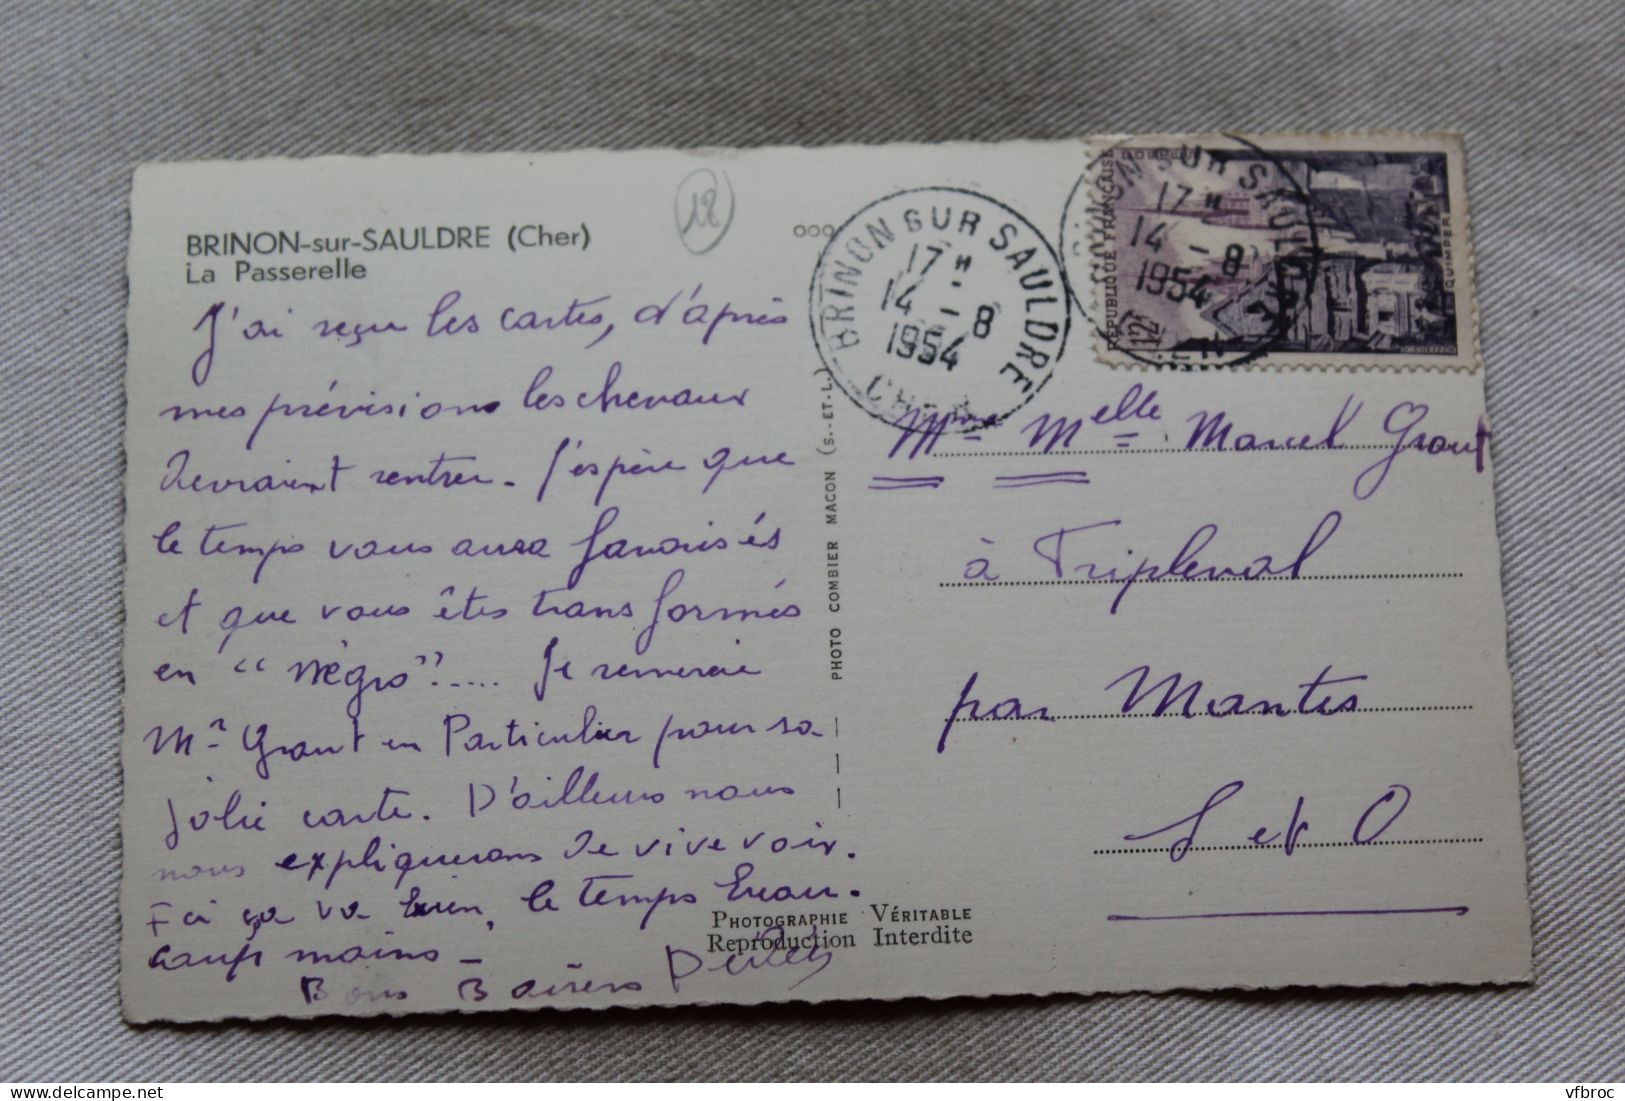 BRINON-sur-SAULDRE (Cher)
La Passerelle
18
J'ai reçu les cartes, d'après
mes prévisions les chevaux
devraient rentrer. J'espère que
le temps vous aura favorisés
et que vous êtes transformés
en "négro"?..... Je remercie
Mr Grant en Particulier pour sa
jolie carte. D'ailleurs nous
nous expliquerons de vive voix.
Ici ça va bien, le temps beau-
coup moins -
Bons Baisers
PHOTO COMBIER MACON (S.-ET-L.)
PHOTOGRAPHIE VÉRITABLE
Reproduction Interdite
BRINON SUR SAULDRE
17 H
14 - 8
1954
CHER
BRINON SUR SAULDRE
17 H
14 - 8
1954
RÉPUBLIQUE FRANÇAISE
POSTES
12F
QUIMPER
Mme Melle Marcel Grant
à Tripleval
par Mantes
S et O
vfbroc